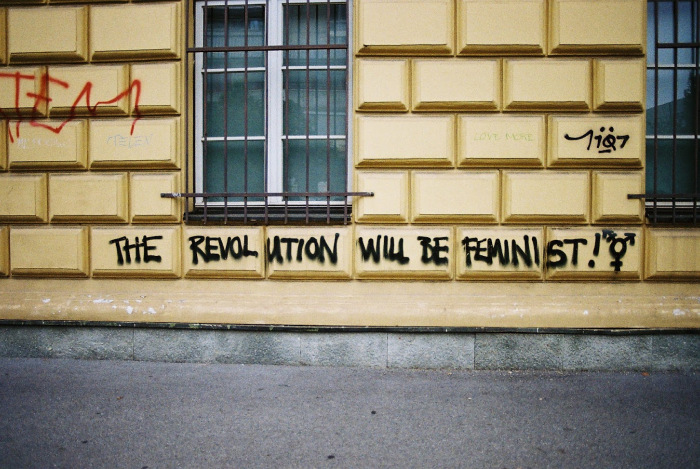 TEM
LOVE MORE
THE REVOLUTION WILL BE FEMINIST!